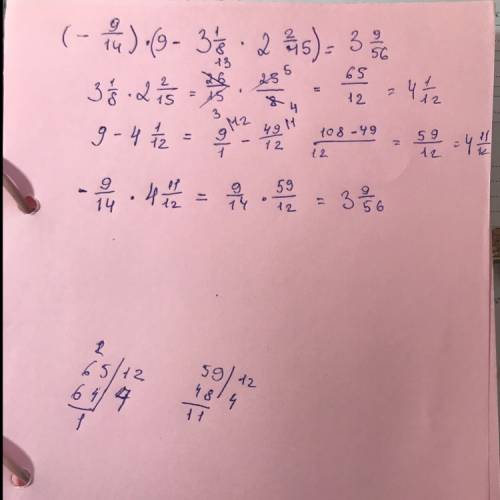 (- 9/14) · (9 - 3 1/8 · 2 2/15) = 3 9/56
3 1/8 · 2 2/15 = 26/15 · 25/8 = 65/12 = 4 1/12
13 5
3 4
9 - 4 1/12 = 9/1 - 49/12 108-49/12 = 59/12 = 4 11/12
- 9/14 · 4 11/12 = 9/14 · 59/12 = 3 9/56
65 12
64
1
59 12
48 4
11